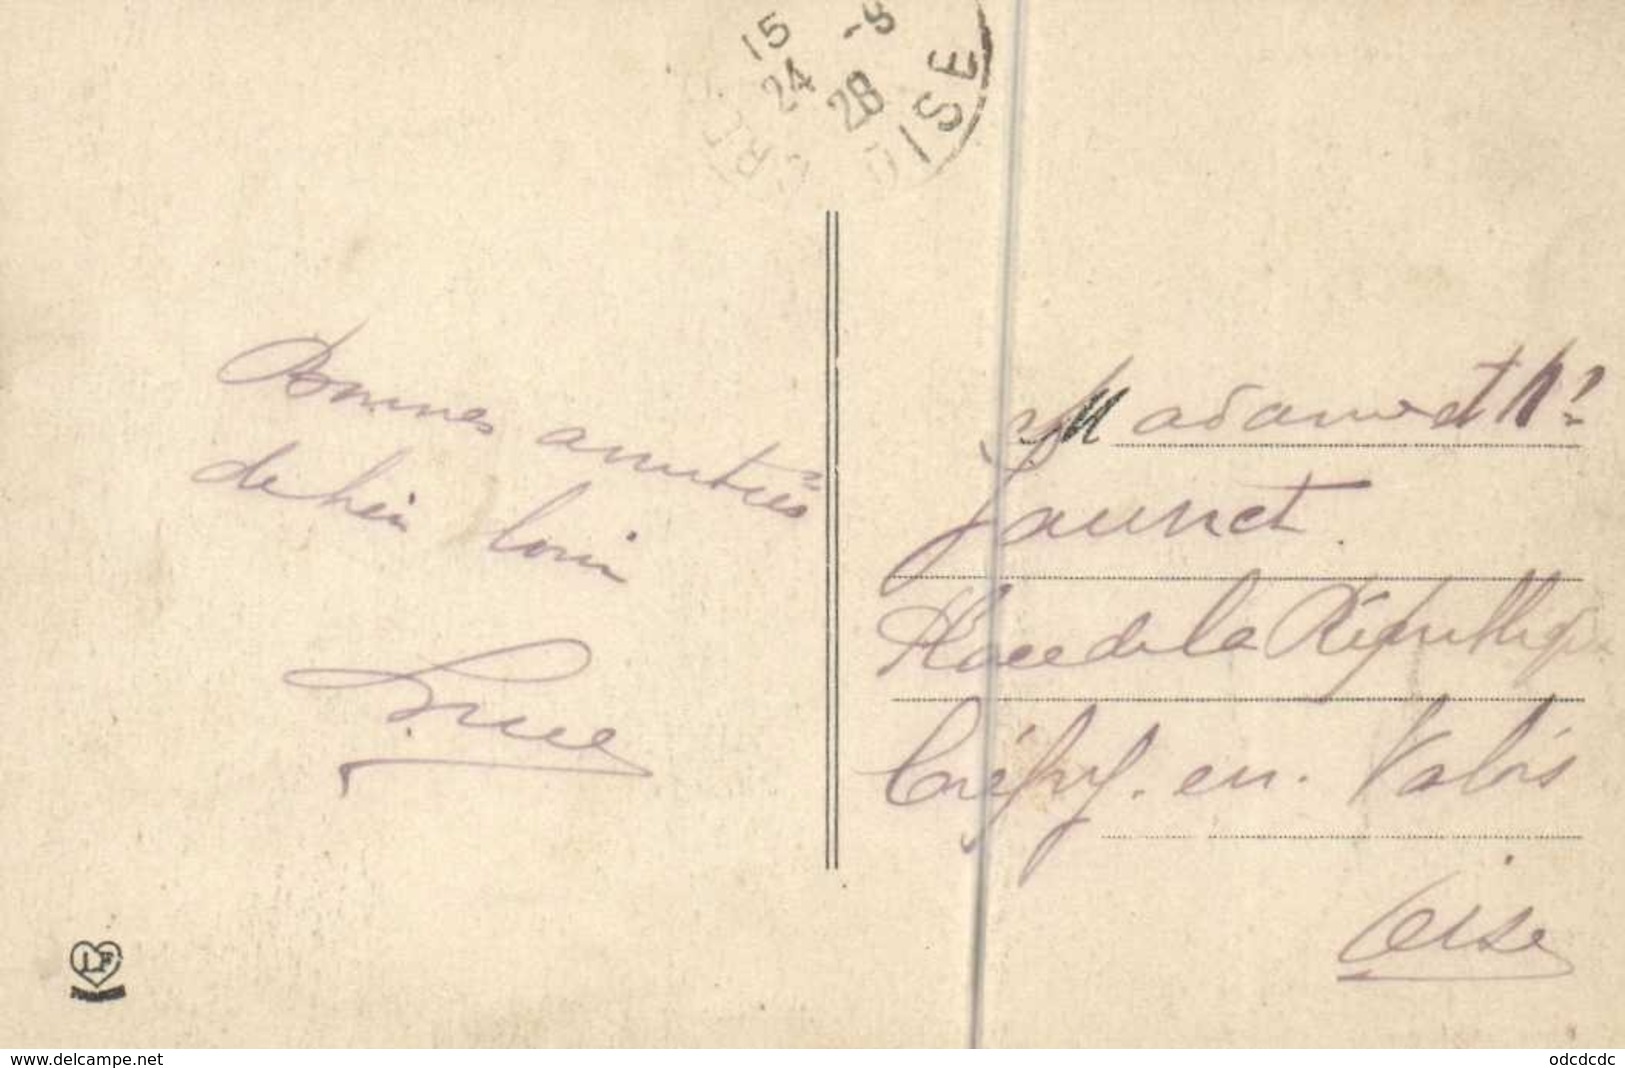 15 -8
24 28
OISE
Bonnes amitiés
de bien loin
Madame et Mr
Jaunet.
Place de la République
Crépy. en. Valois
Oise
LF
www.delcampe.net
odcdcdc